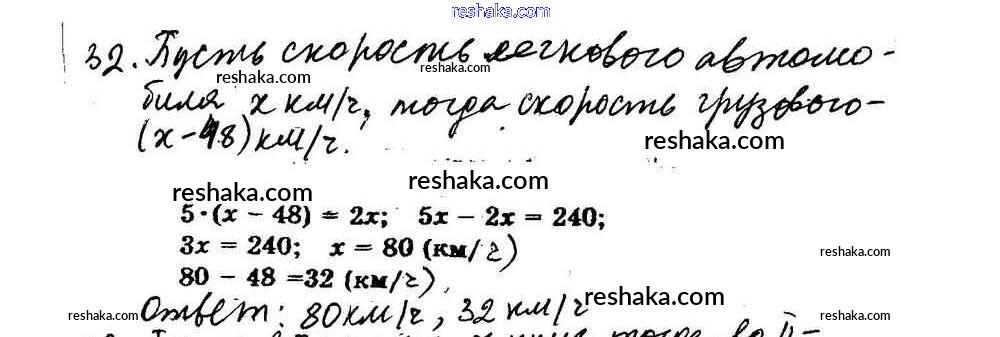 reshaka.com
32. Пусть скорость легкового автомо-
reshaka.com reshaka.com reshaka.com
биля x км/ч, тогда скорость грузового-
(x-48) км/ч.
reshaka.com
reshaka.com
reshaka.com
5·(x − 48) = 2x; 5x − 2x = 240;
3x = 240; x = 80 (км/ч)
reshaka.com
80 − 48 =32 (км/ч),
reshaka.com
Ответ: 80км/ч, 32 км/ч
reshaka.com reshaka.com reshaka.com